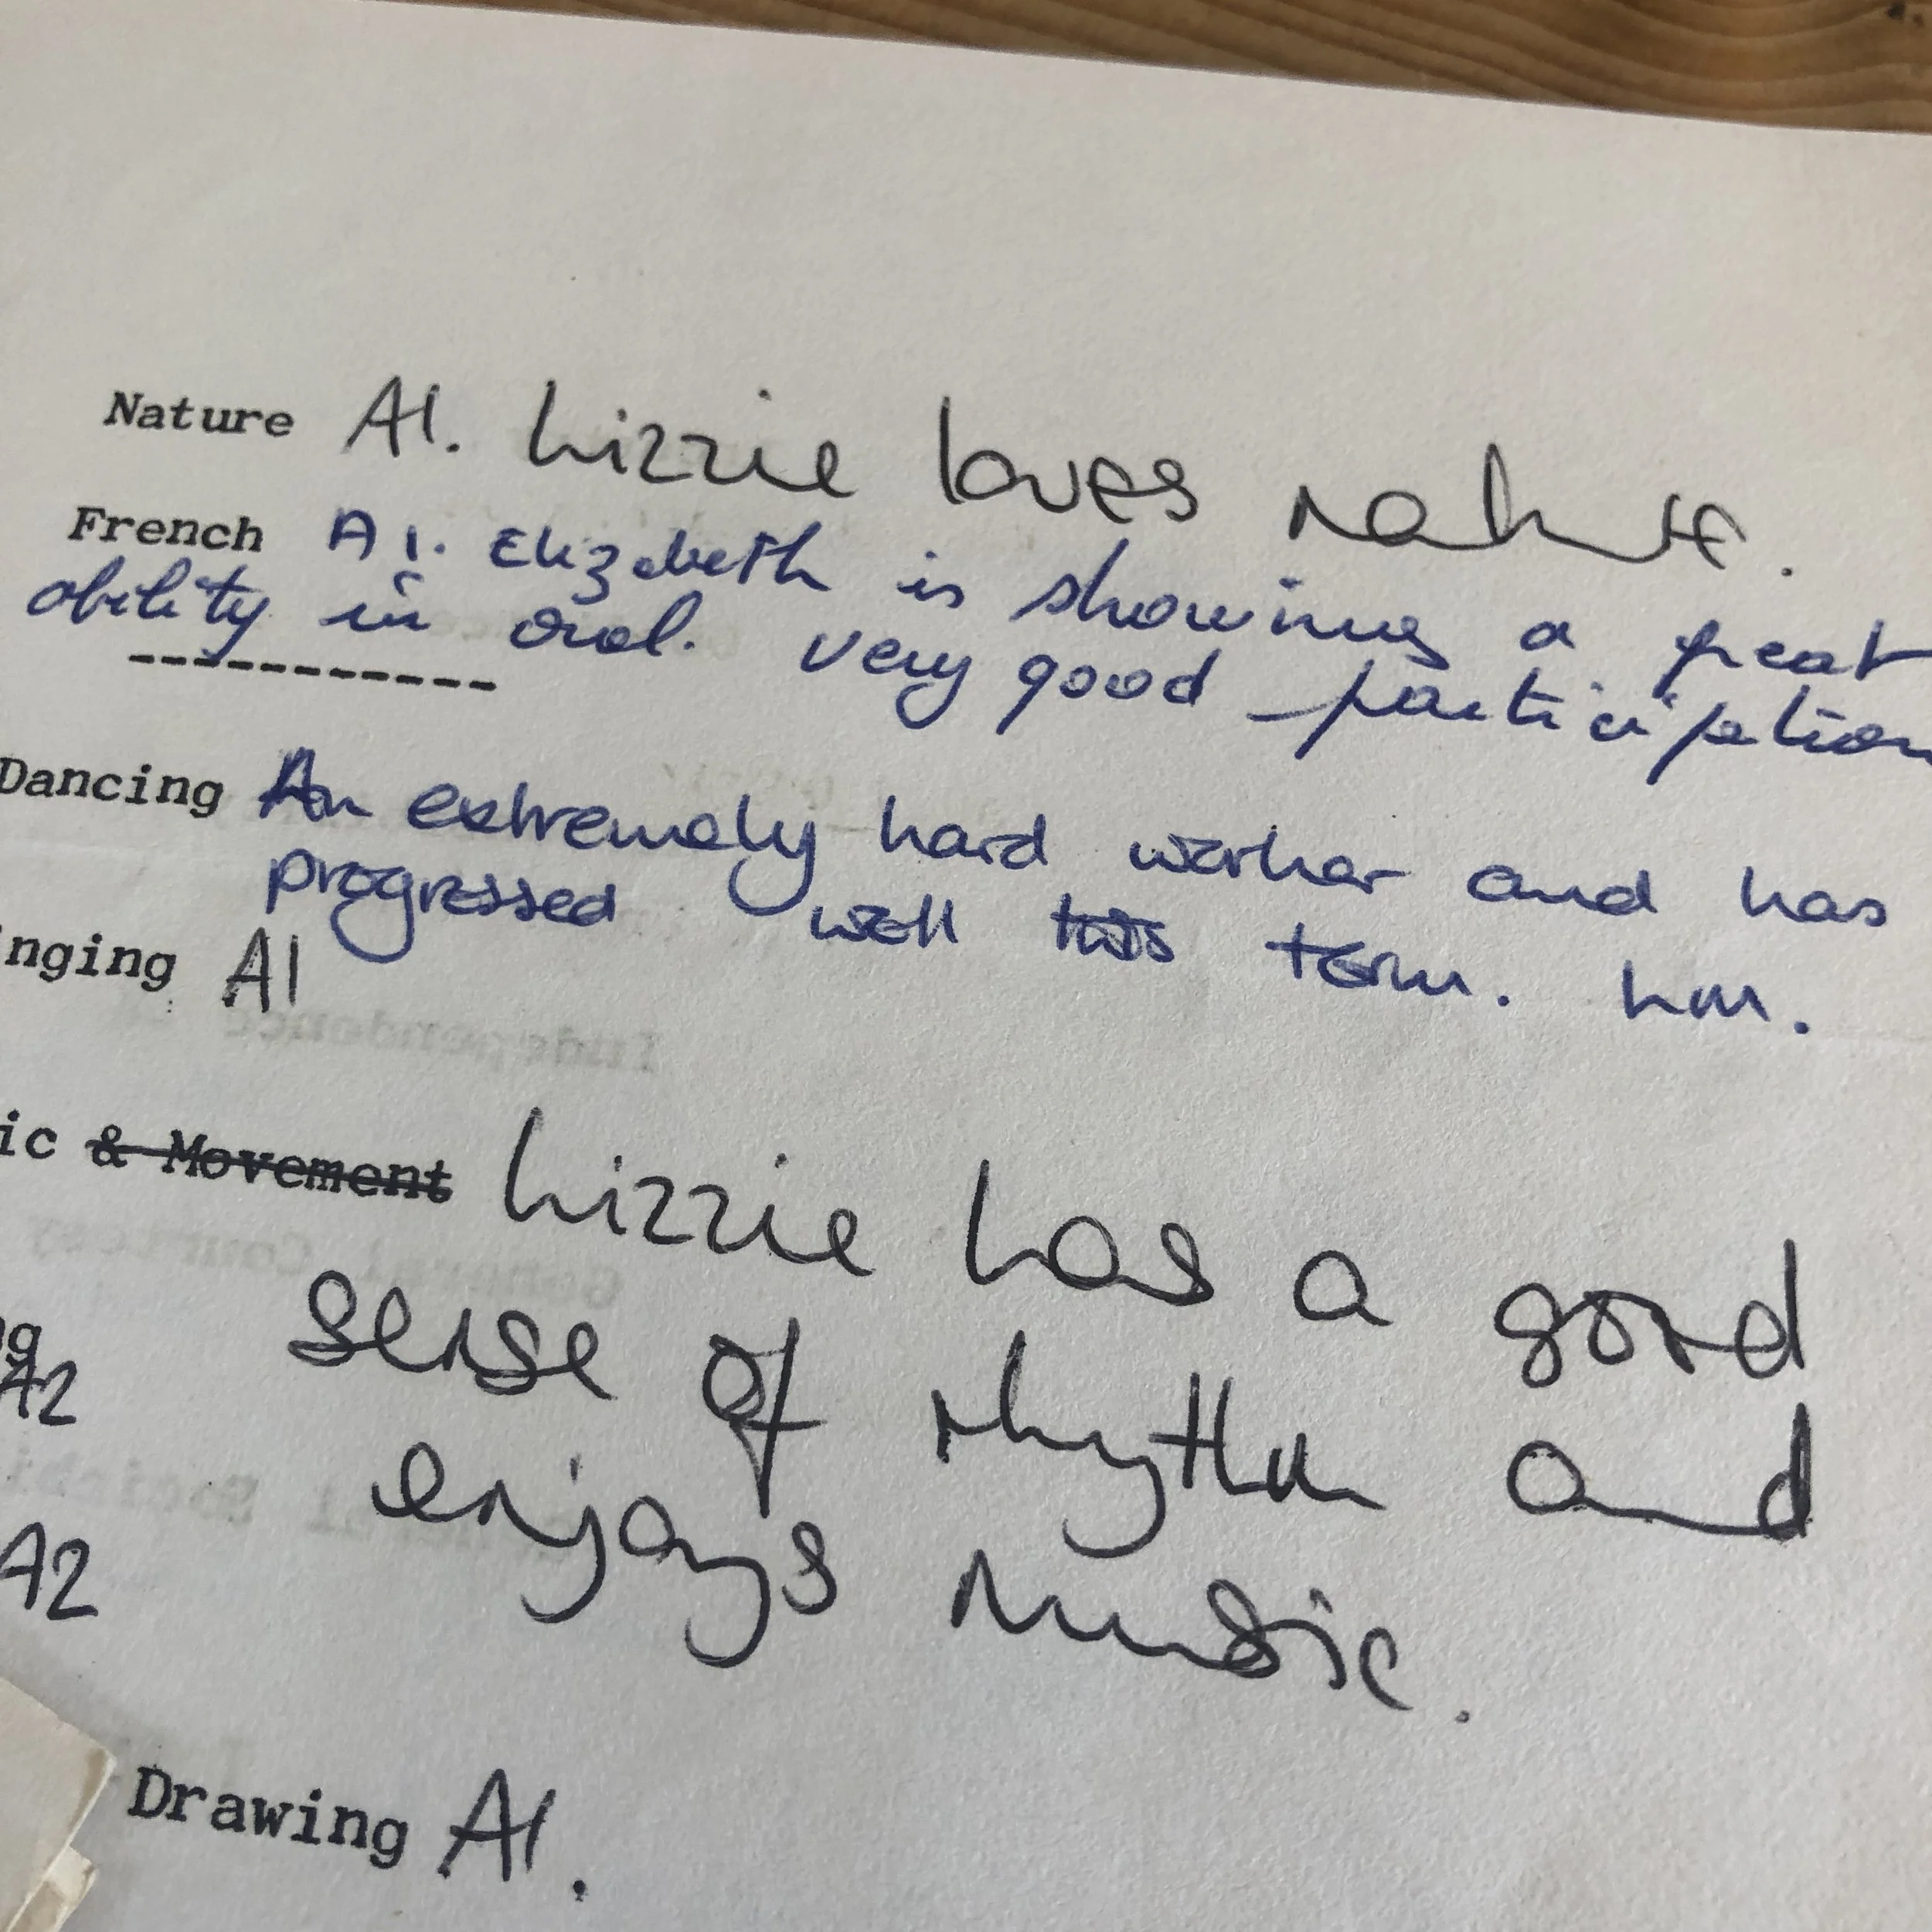 Nature A1. Lizzie loves nature.
French A1. Elizabeth is showing a great
ability in oral. very good participation
----------
Dancing An extremely hard worker and has
progressed well this term. hm.
nging A1
ic & Movement Lizzie has a good
sense of rhythm and
g
A2
enjoys music.
A2
Drawing A1.